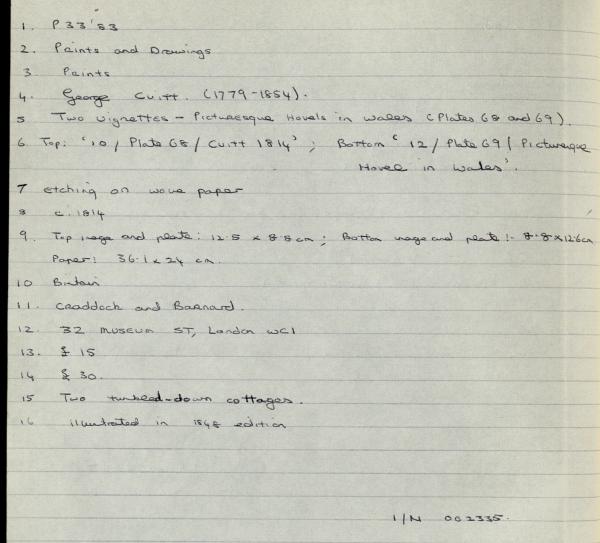 1. P 33 '83
2. Prints and Drawings
3 Prints
4. George Cuitt. (1779-1854).
5 Two Vignettes - Picturesque Hovels in Wales (Plates 68 and 69).
6. Top: '10 / Plate 68 / Cuitt 1814' ; Bottom '12 / Plate 69 / Picturesque
Hovel in Wales'.
7 etching on wove paper
8 c. 1814
9. Top image and plate: 12.5 x 8.8 cm ; Bottom image and plate :- 8.8 x 12.6cm
Paper: 36.1 x 24 cm.
10 Britain
11. Craddock and Barnard.
12. 32 Museum ST, London WC1
13. £ 15
14 £ 30.
15 Two tumbled-down cottages.
16 illustrated in 1848 edition
I/N 002335.